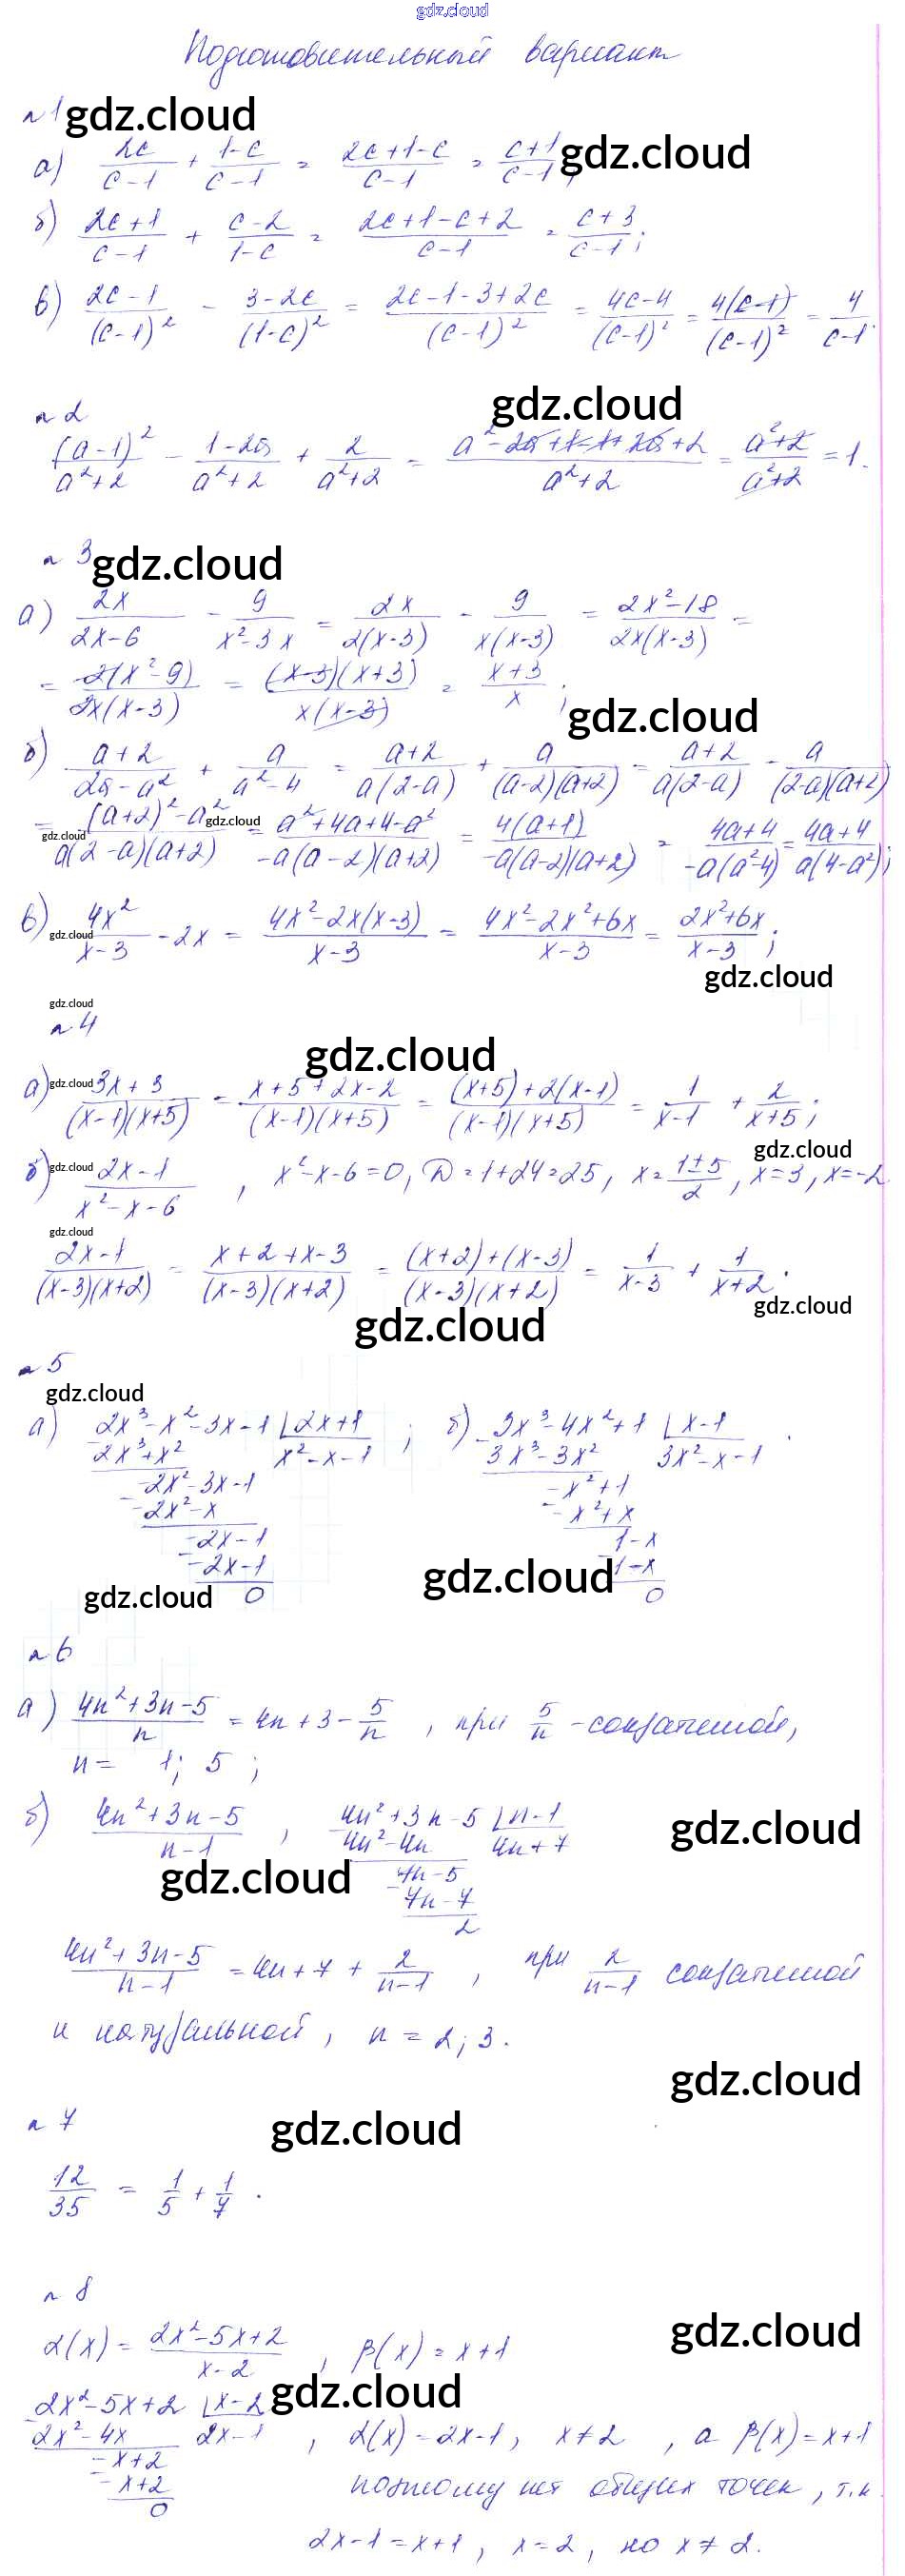 gdz.cloud
Подготовительный вариант
№1 gdz.cloud
а) 2c/(c-1) + (1-c)/(c-1) = (2c+1-c)/(c-1) = (c+1)/(c-1); gdz.cloud
б) (2c+1)/(c-1) + (c-2)/(1-c) = (2c+1-c+2)/(c-1) = (c+3)/(c-1);
в) (2c-1)/(c-1)² - (3-2c)/(1-c)² = (2c-1-3+2c)/(c-1)² = (4c-4)/(c-1)² = 4(c-1)/(c-1)² = 4/(c-1).
gdz.cloud
№2
(a-1)²/(a²+2) - (1-2a)/(a²+2) + 2/(a²+2) = (a²-2a+1-1+2a+2)/(a²+2) = (a²+2)/(a²+2) = 1.
№3 gdz.cloud
а) 2x/(2x-6) - 9/(x²-3x) = 2x/(2(x-3)) - 9/(x(x-3)) = (2x²-18)/(2x(x-3)) =
= 2(x²-9)/(2x(x-3)) = (x-3)(x+3)/(x(x-3)) = (x+3)/x; gdz.cloud
б) (a+2)/(2a-a²) + a/(a²-4) = (a+2)/(a(2-a)) + a/((a-2)(a+2)) = (a+2)/(a(2-a)) - a/((2-a)(a+2))
gdz.cloud gdz.cloud
= ((a+2)²-a²)/(a(2-a)(a+2)) = (a²+4a+4-a²)/(-a(a-2)(a+2)) = 4(a+1)/(-a(a-2)(a+2)) = (4a+4)/(-a(a²-4)) = (4a+4)/(a(4-a²));
в) gdz.cloud 4x²/(x-3) - 2x = (4x²-2x(x-3))/(x-3) = (4x²-2x²+6x)/(x-3) = (2x²+6x)/(x-3);
gdz.cloud
gdz.cloud
№4
gdz.cloud
а) gdz.cloud (3x+3)/((x-1)(x+5)) = (x+5+2x-2)/((x-1)(x+5)) = ((x+5)+2(x-1))/((x-1)(x+5)) = 1/(x-1) + 2/(x+5);
gdz.cloud
б) gdz.cloud (2x-1)/(x²-x-6), x²-x-6=0, D=1+24=25, x=(1±5)/2, x=3, x=-2
gdz.cloud
(2x-1)/((x-3)(x+2)) = (x+2+x-3)/((x-3)(x+2)) = ((x+2)+(x-3))/((x-3)(x+2)) = 1/(x-3) + 1/(x+2).
gdz.cloud
gdz.cloud
№5
gdz.cloud
а) 2x³-x²-3x-1 | 2x+1 ; б) 3x³-4x²+1 | x-1 .
2x³+x² x²-x-1 3x³-3x² 3x²-x-1
-2x²-3x-1 -x²+1
-2x²-x -x²+x
-2x-1 1-x
-2x-1 gdz.cloud 1-x
gdz.cloud 0 0
№6
а) (4n²+3n-5)/n = 4n+3-5/n, при 5/n -сократимой,
n= 1; 5;
б) (4n²+3n-5)/(n-1), 4n²+3n-5 | n-1 gdz.cloud
4n²-4n 4n+7
gdz.cloud 7n-5
7n-7
2
(4n²+3n-5)/(n-1) = 4n+7+2/(n-1), при 2/(n-1) сократимой
и натуральной, n=2; 3.
gdz.cloud
№7 gdz.cloud
12/35 = 1/5 + 1/7.
№8
gdz.cloud
α(x) = (2x²-5x+2)/(x-2), β(x)=x+1
gdz.cloud
2x²-5x+2 | x-2
2x²-4x 2x-1, α(x)=2x-1, x≠2, а β(x)=x+1
-x+2
-x+2 поэтому нет общих точек, т.к.
0
2x-1=x+1, x=2, но x≠2.